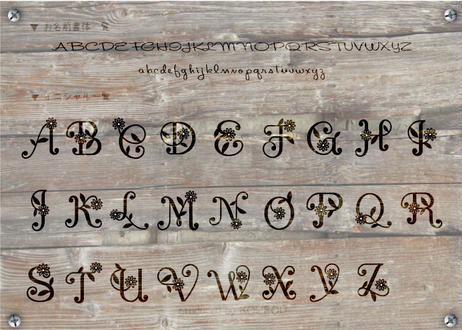 ▼ お名前書体一覧
ABCDEFGHIJKLMNOPQRSTUVWXYZ
abcdefghijklmnopqrstuvwxyz
▼ イニシャル一覧
A B C D E F G H I
J K L M N O P Q R
S T U V W X Y Z